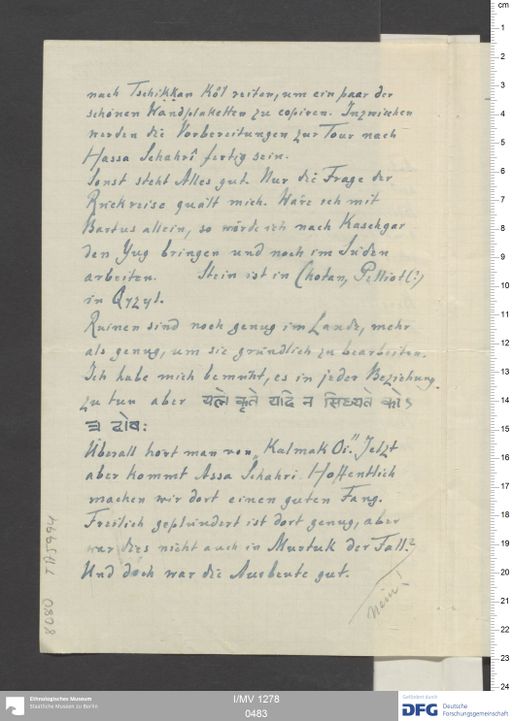 nach Tschikkan Köl reiten, um ein paar der
schönen Wandplaketten zu copiren. Inzwischen
werden die Vorbereitungen zur Tour nach
Hassa Schahrî fertig sein.
Sonst steht Alles gut. Nur die Frage der
Rückreise quält mich. Wäre ich mit
Bartus allein, so würde ich nach Kaschgar
den Zug bringen und noch im Süden
arbeiten. Stein ist in Chotan, Pelliot (?)
in Qyzyl.
Ruinen sind noch genug im Lande, mehr
als genug, um sie gründlich zu bearbeiten.
Ich habe mich bemüht, es in jeder Beziehung
zu tun aber यत्ने कृते यदि न सिध्यते कोऽ
त्र दोषः
Überall hört man von „Kalmak Öi." Jetzt
aber kommt Assa Schahri. Hoffentlich
machen wir dort einen guten Fang.
Freilich geplündert ist dort genug, aber
war dies nicht auch in Murtuk der Fall?
Und doch war die Ausbeute gut.
Nein!
8080 TA5994
cm
1
2
3
4
5
6
7
8
9
10
11
12
13
14
15
16
17
18
19
20
21
22
23
24
Ethnologisches Museum
Staatliche Museen zu Berlin
I/MV 1278
0483
Gefördert durch
DFG Deutsche
Forschungsgemeinschaft